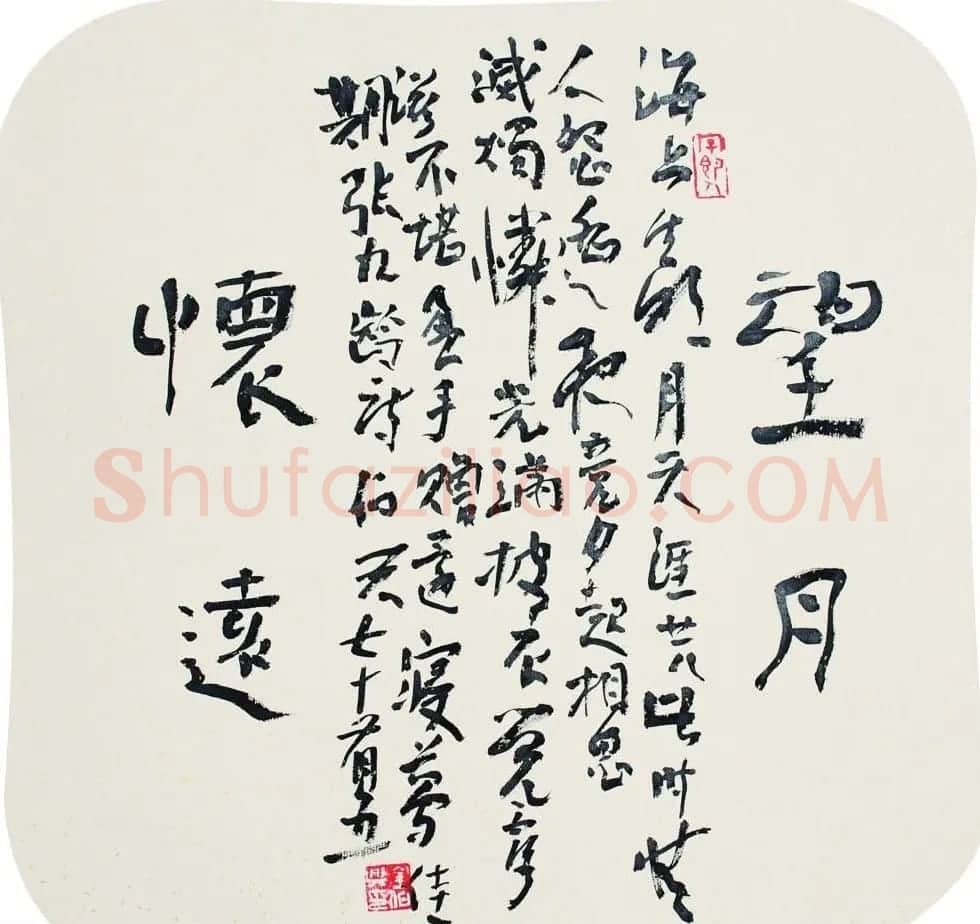 望月
海上生明月天涯共此時情
人怨遙夜竟夕起相思
滅燭憐光滿披衣覺露
滋不堪盈手贈還寢夢佳
期張九齡詩 七十
懷遠
Shufaziliao.COM